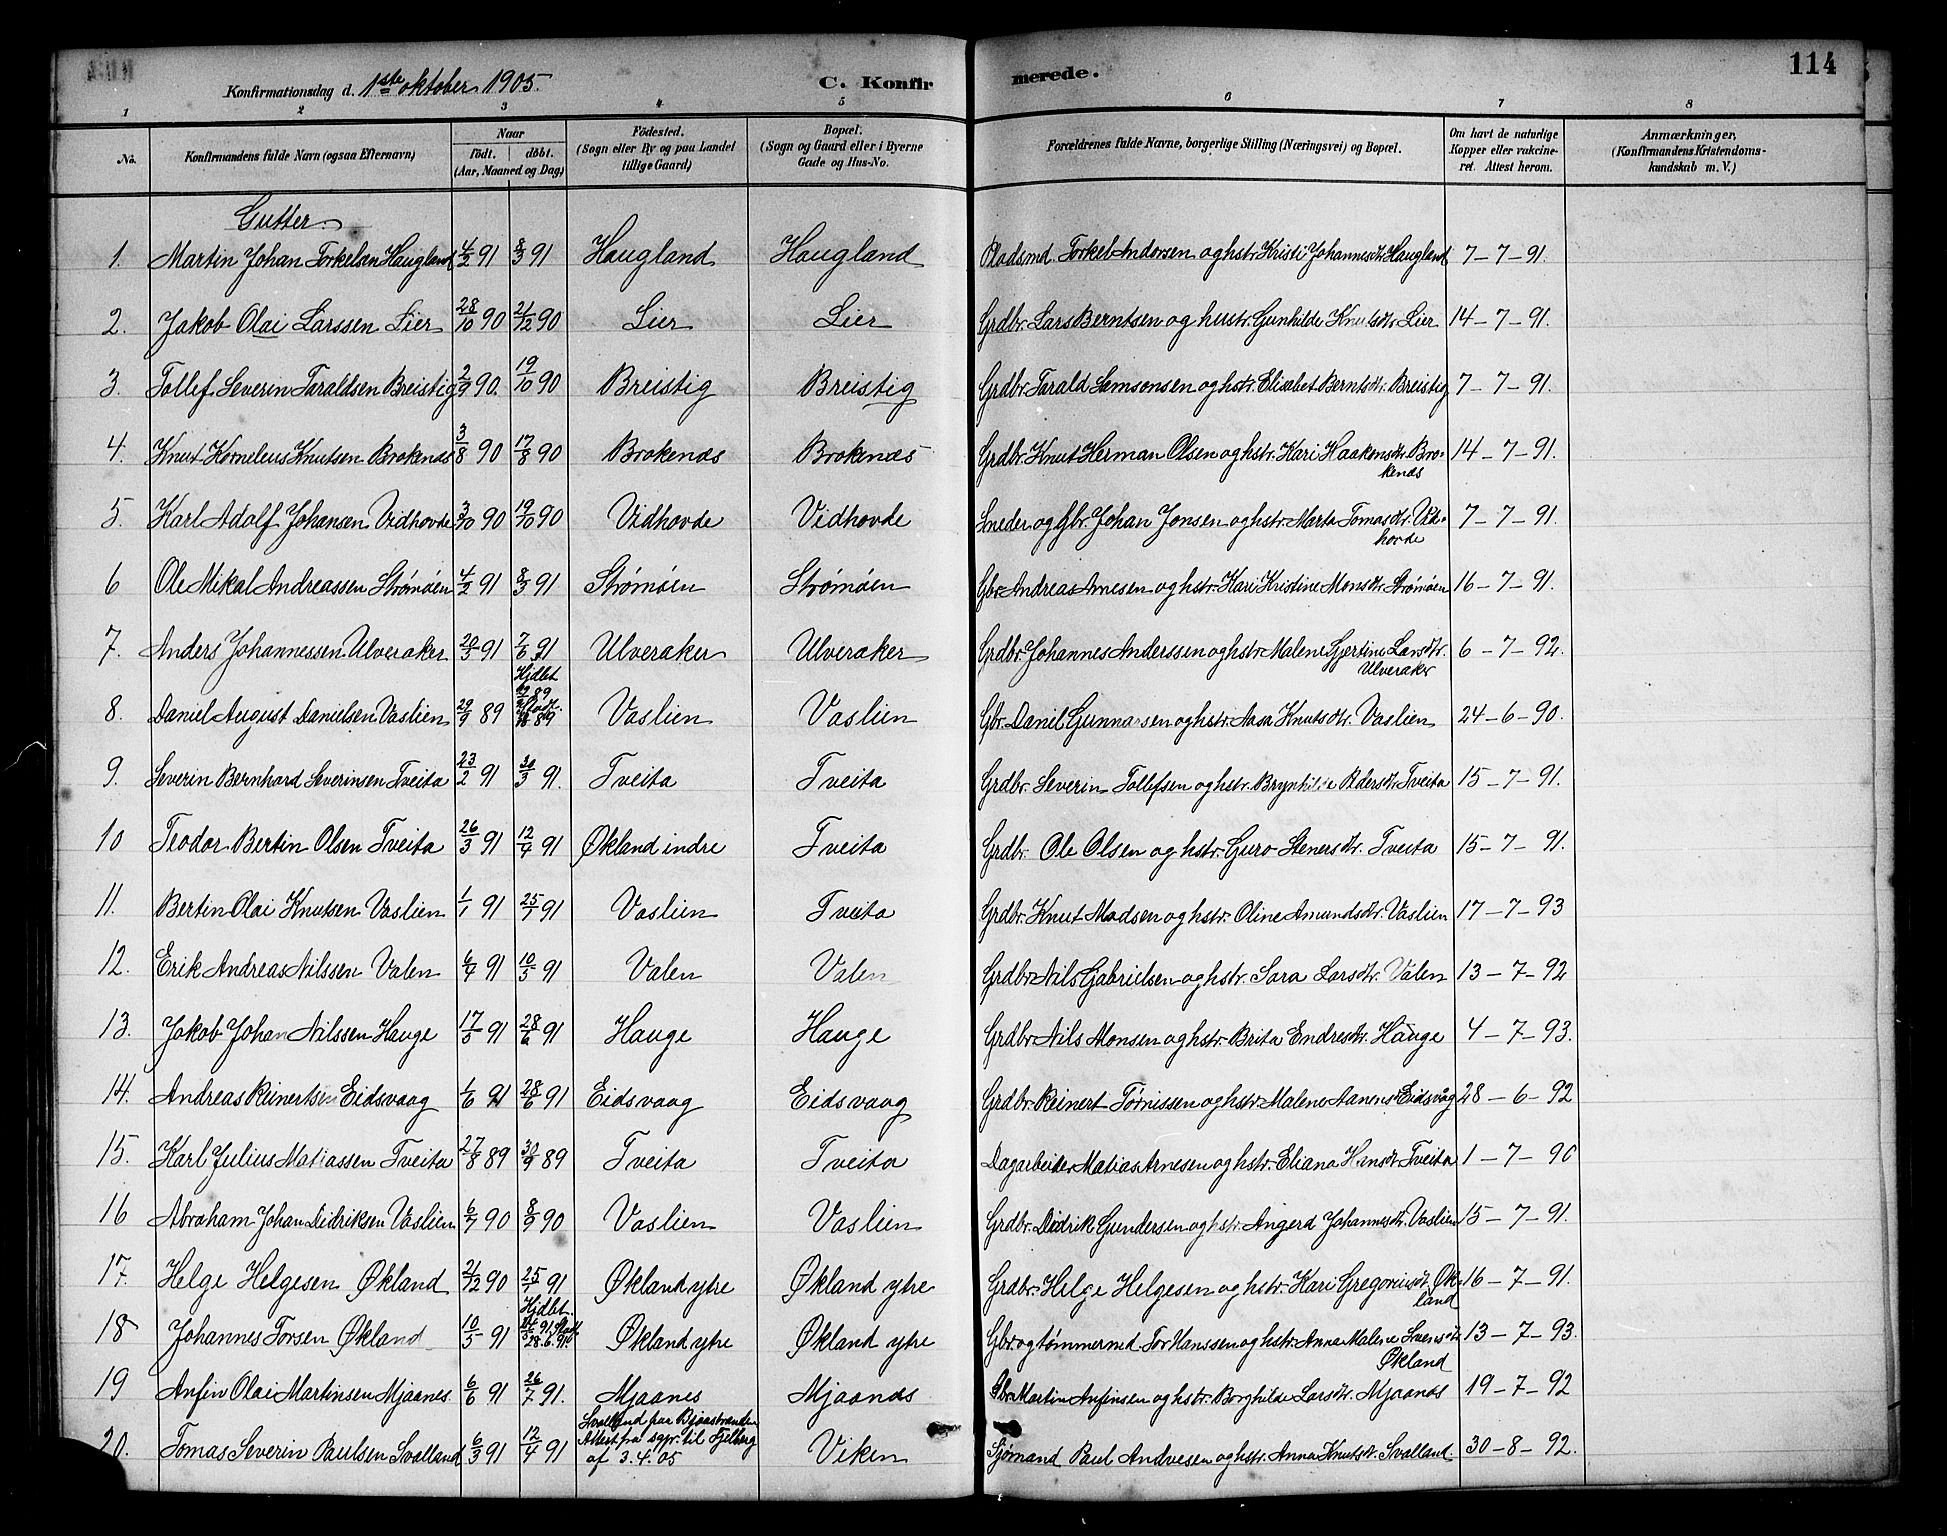 114
Konfirmationsdag d. 1ste oktober 1905. C. Konfirmerede.
1 2 3 4 5 6 7 8
No. Konfirmandens fulde Navn (ogsaa Efternavn) Naar født. døbt. (Aar, Maaned og Dag) Fødested. (Sogn eller By og paa Landet tillige Gaard) Bopæl. (Sogn og Gaard eller i Byerne Gade og Hus-No. Forældrenes fulde Navne, borgerlige Stilling (Næringsvei) og Bopæl. Om havt de naturlige Kopper eller vakcineret. Attest herom. Anmærkninger, (Konfirmandens Kristendomskundskab m. V.)
Gutter.
1. Martin Johan Torkelsen Haugland 4/2 91 8/3 91 Haugland Haugland Pladsmd. Torkel Andersen og hstr. Kristi Johannesdtr. Haugland 7-7-91.
2. Jakob Olai Larssen Lier 28/10 90 21/12 90 Lier Lier Grdbr. Lars Berntsen og hustr. Gunhilde Knutsdtr. Lier 14-7-91.
3. Tollef Severin Taraldsen Breistig 2/9 90. 19/10 90 Breistig Breistig Grdbr. Tarald Samsonsen og hstr. Elisabet Berntsdtr. Breistig 7-7-91.
4. Knut Kornelius Knutsen Brokenæs 3/8 90 17/8 90 Brokenæs Brokenæs Grdbr. Knut Herman Olsen og hstr. Kari Haakensdtr. Brokenæs 14-7-91.
5. Karl Adolf Johansen Vidhovde 3/10 90 19/10 90 Vidhovde Vidhovde Sneder og Gbr. Johan Jonsen og hstr. Marta Tomasdtr. Vidhovde 7-7-91.
6 Ole Mikal Andreassen Strømøen 4/2 91 8/3 91 Strømøen Strømøen Gbr. Andreas Arnesen og hstr. Kari Kristine Monsdtr. Strømøen 16-7-91.
7. Anders Johannessen Ulveraker 20/5 91 7/6 91 Ulveraker Ulveraker Grdbr. Johannes Anderssen og hstr. Malene Gjertine Larsdtr. Ulveraker 6-7-92.
8. Daniel August Danielsen Vaslien 29/9 89 Hjdbt. 89 Vaslien Vaslien Gbr. Danil Gunnarsen og hstr. Aasa Knutsdtr. Vaslien 24-6-90.
9. Severin Bernhard Severinsen Tveita 23/2 91 30/3 91. Tveita Tveita Grdbr. Severin Tollefsen og hstr. Brynhilde Pedersdtr. Tveita 15-7-91.
10 Teodor Bertin Olsen Tveita 26/3 91 12/4 91 Økland indre Tveita Grdbr. Ole Olsen og hstr. Guro Stenersdtr. Tveita 15-7-91.
11. Bertin Olai Knutsen Vaslien 1/1 91 25/1 91 Vaslien Tveita Grdbr. Knut Madsen og hstr. Oline Amundsdtr. Vaslien 17-7-93
12. Erik Andreas Nilssen Valen 6/4 91 10/5 91 Valen Valen Grdbr. Nils Gabrielsen og hstr. Sara Larsdtr. Valen 13-7-92
13. Jakob Johan Nilssen Hauge 17/5 91 28/6 91 Hauge Hauge Grdbr. Nils Monsen og hstr. Brita Endresdtr. Hauge 4-7-93.
14. Andreas Reinertsen Eidsvaag 1/6 91 28/6 91 Eidsvaag Eidsvaag Grdbr. Reinert Tørrissen og hstr. Malene Aanensdtr. Eidsvåg 28-6-92
15. Karl Julius Matiassen Tveita 27/8 89 30/9 89 Tveita Tveita Dagarbeider Matias Arnesen og hstr. Eliana Hansdtr. Tveita 1-7-90
16 Abraham Johan Didriksen Vaslien 6/7 90 8/9 90 Vaslien Vaslien Grdbr. Didrik Gundersen og hstr. Angerd Johannesdtr. Vaslien 15-7-91.
17 Helge Helgesen Økland 21/12 90 25/1 91 Økland ytre Økland ytre Grdbr. Helge Helgesen og hstr. Kari Gregoriusdtr. Økland 16-7-91.
18 Johannes Torsen Økland 10/5 91 Hjdbt. 91 28.6.91. Økland ytre Økland ytre Gbr. og tømmermd. Tor Hanssen og hstr. Anna Malene Svensdtr. Økland 13-7-93.
19 Anfin Olai Martinsen Mjaanes. 6/6 91 26/7 91. Mjaanes Mjaanæs Gbr. Martin Anfinsen og hstr. Borghilde Larsdtr. Mjaanæs 19-7-92
20. Tomas Severin Paulsen Svalland 6/3 91 12/4 91 Svalland paa Bjoastranden Attest fra sgpr. til Fjelberg af 3.4.05 Viken Sjømand Paul Andresen og hstr. Anna Knutsdtr. Svalland. 30-8-92.